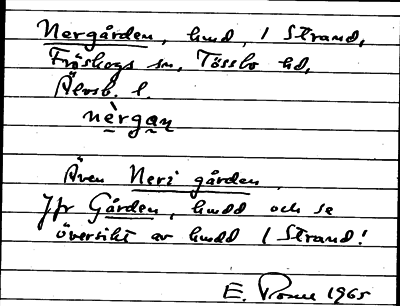 Nergården, hmd, i Strand,
Fröskogs sn, Tössbo hd,
Älvsb. l.
nèrgan
Även Neri gården
Jfr Gården, hmdd och se
översikt av hmdd i Strand!
E. 1965